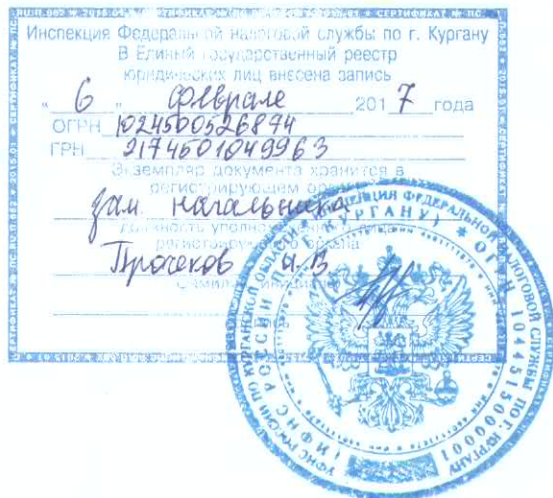 Инспекция Федеральной налоговой службы по г. Кургану
В Единый государственный реестр
юридических лиц внесена запись
" 6 " феврале 2017 года
ОГРН 1024500526894
ГРН 2174501049963
Экземпляр документа хранится в
регистрирующем органе
зам. начальника
должность уполномоченного лица
регистрирующего органа
И.В
фамилия, инициалы
УФНС РОССИИ ПО КУРГАНСКОЙ ОБЛАСТИ ИНСПЕКЦИЯ ФЕДЕРАЛЬНОЙ НАЛОГОВОЙ СЛУЖБЫ ПО Г. КУРГАНУ
(ИФНС РОССИИ ПО Г. КУРГАНУ) * ОГРН 1044515000001